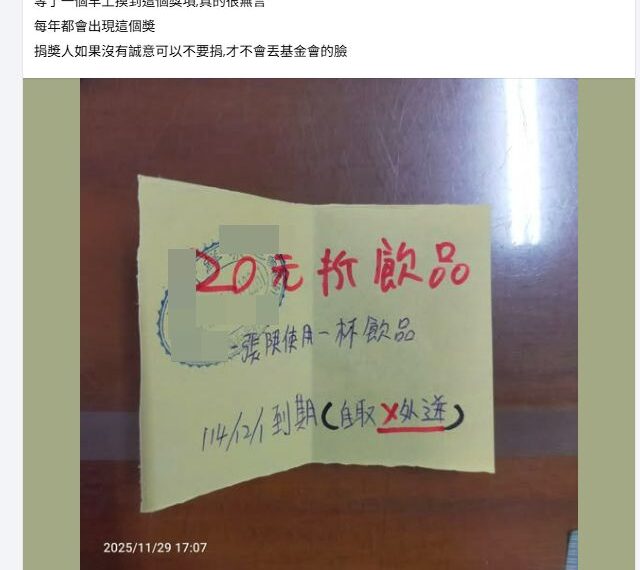 等了一個早上摸到這個獎項,真的很無言
每年都會出現這個獎
捐獎人如果沒有誠意可以不要捐,才不會丟基金會的臉
20元折飲品
一張限使用一杯飲品
114/12/1到期(自取X外送)
2025/11/29 17:07